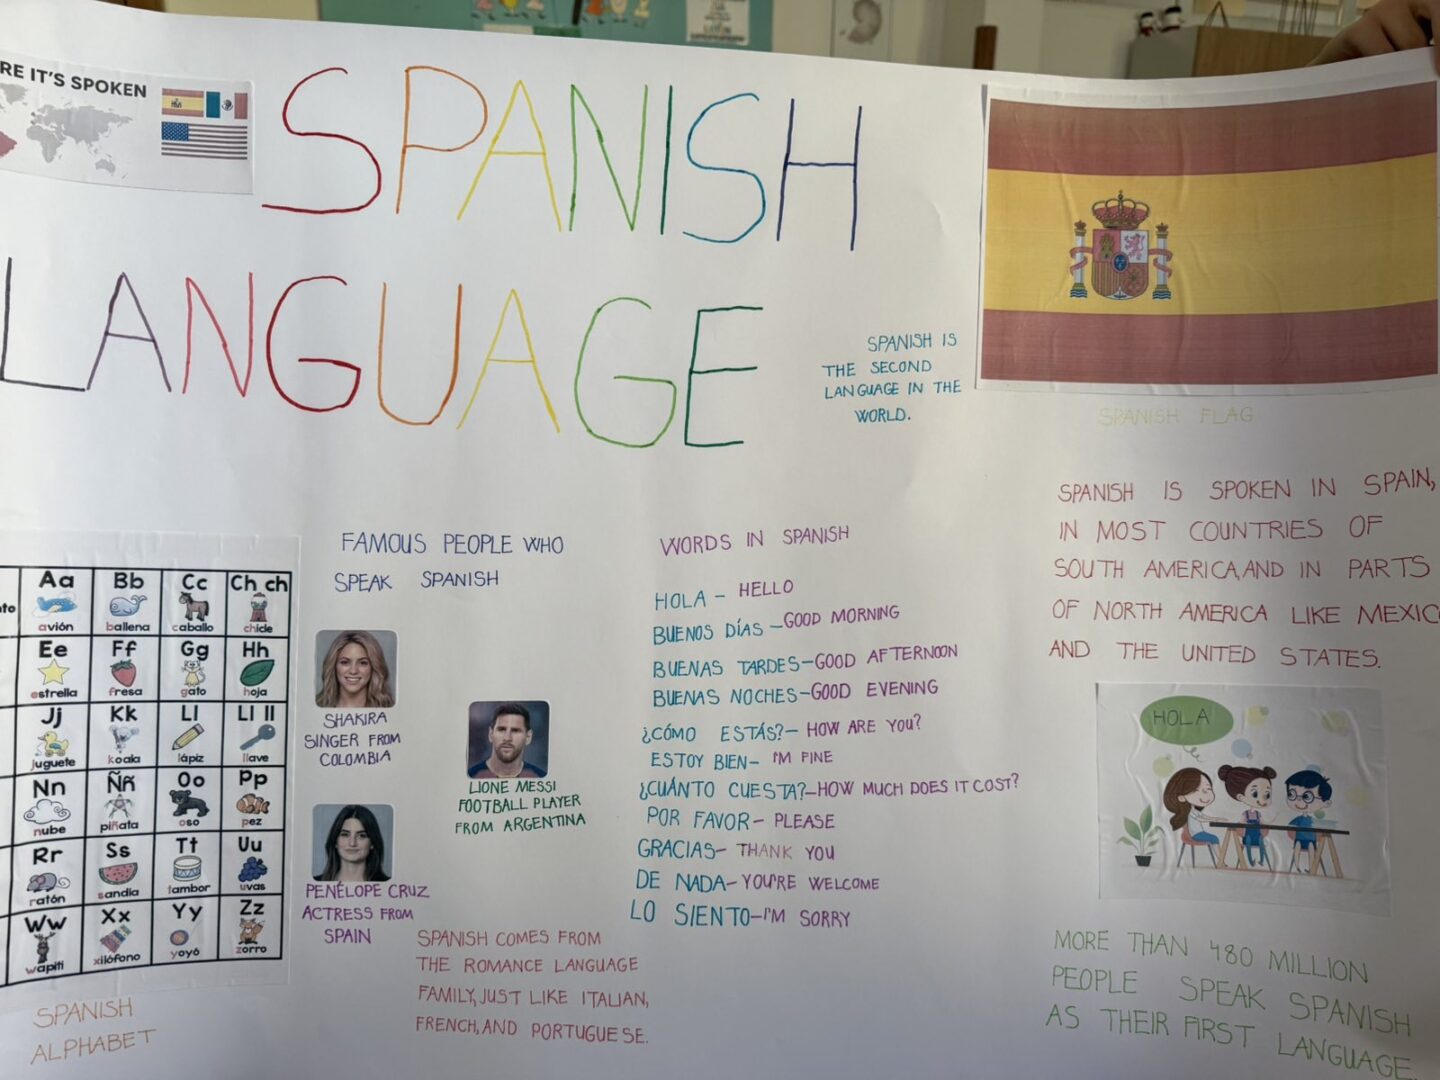 RE IT'S SPOKEN
SPANISH
LANGUAGE
SPANISH IS
THE SECOND
LANGUAGE IN THE
WORLD.
SPANISH FLAG
SPANISH IS SPOKEN IN SPAIN,
IN MOST COUNTRIES OF
SOUTH AMERICA,AND IN PARTS
OF NORTH AMERICA LIKE MEXIC
AND THE UNITED STATES.
HOLA
MORE THAN 480 MILLION
PEOPLE SPEAK SPANISH
AS THEIR FIRST LANGUAGE.
Aa Bb Cc Ch ch
avión ballena caballo chicle
Ee Ff Gg Hh
estrella fresa gato hoja
Jj Kk Ll Ll ll
juguete koala lápiz llave
Nn Ññ Oo Pp
nube piñata oso pez
Rr Ss Tt Uu
ratón sandía tambor uvas
Ww Xx Yy Zz
wapiti xilófono yoyó zorro
SPANISH
ALPHABET
FAMOUS PEOPLE WHO
SPEAK SPANISH
SHAKIRA
SINGER FROM
COLOMBIA
LIONE MESSI
FOOTBALL PLAYER
FROM ARGENTINA
PENÉLOPE CRUZ
ACTRESS FROM
SPAIN
SPANISH COMES FROM
THE ROMANCE LANGUAGE
FAMILY,JUST LIKE ITALIAN,
FRENCH,AND PORTUGUESE.
WORDS IN SPANISH
HOLA – HELLO
BUENOS DÍAS –GOOD MORNING
BUENAS TARDES–GOOD AFTERNOON
BUENAS NOCHES–GOOD EVENING
¿CÓMO ESTÁS?– HOW ARE YOU?
ESTOY BIEN– I'M FINE
¿CUÁNTO CUESTA?–HOW MUCH DOES IT COST?
POR FAVOR– PLEASE
GRACIAS– THANK YOU
DE NADA–YOU'RE WELCOME
LO SIENTO–I'M SORRY